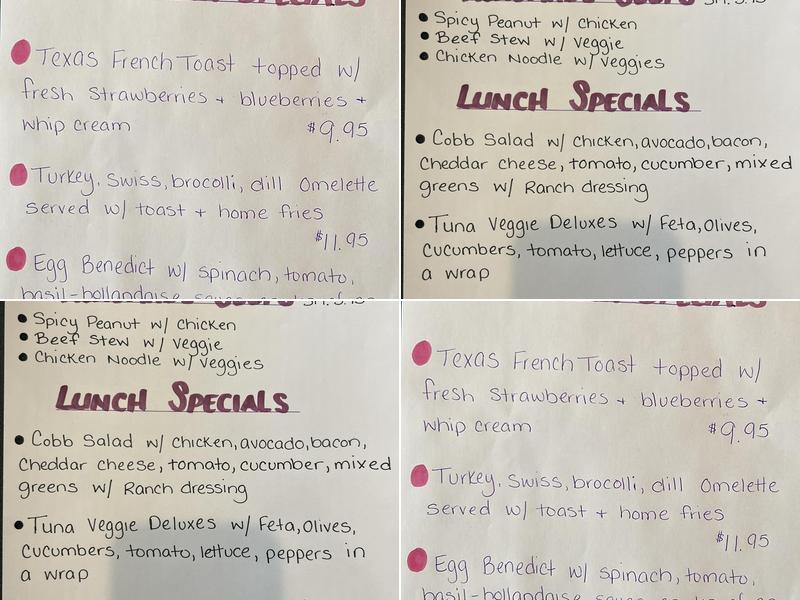 SPECIALS
Texas French Toast topped w/
fresh strawberries + blueberries +
whip cream $9.95
Turkey, swiss, brocolli, dill Omelette
served w/ toast + home fries
$11.95
Egg Benedict w/ spinach, tomato,
basil-hollandaise
Spicy Peanut w/ Chicken
Beef Stew w/ Veggie
Chicken Noodle w/ Veggies
LUNCH SPECIALS
Cobb Salad w/ Chicken, avocado, bacon,
Cheddar cheese, tomato, cucumber, mixed
greens w/ Ranch dressing
Tuna Veggie Deluxes w/ Feta, Olives,
Cucumbers, tomato, lettuce, peppers in
a wrap
Spicy Peanut w/ Chicken
Beef Stew w/ Veggie
Chicken Noodle w/ Veggies
LUNCH SPECIALS
Cobb Salad w/ Chicken, avocado, bacon,
Cheddar cheese, tomato, cucumber, mixed
greens w/ Ranch dressing
Tuna Veggie Deluxes w/ Feta, Olives,
Cucumbers, tomato, lettuce, peppers in
a wrap
Texas French Toast topped w/
fresh strawberries + blueberries +
whip cream $9.95
Turkey, swiss, brocolli, dill Omelette
served w/ toast + home fries
$11.95
Egg Benedict w/ spinach, tomato,
basil-hollandaise